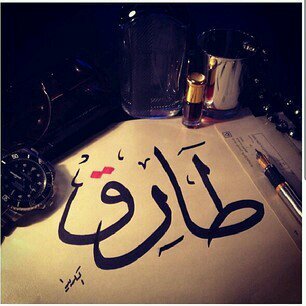 طَارِق